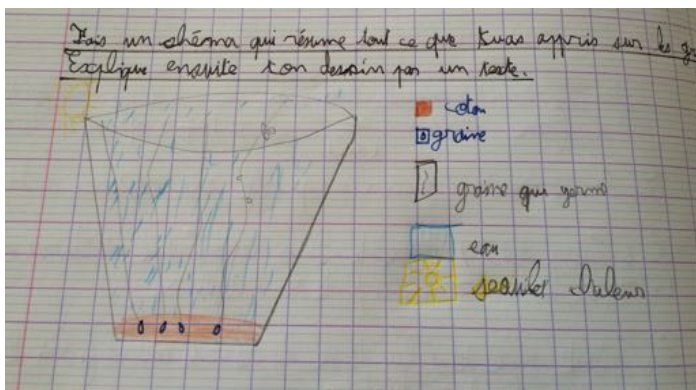 Fais un shéma qui résume tout ce que tu as appris sur les
Explique ensuite ton dessin par un texte.
coton
graine
graine qui germe
eau